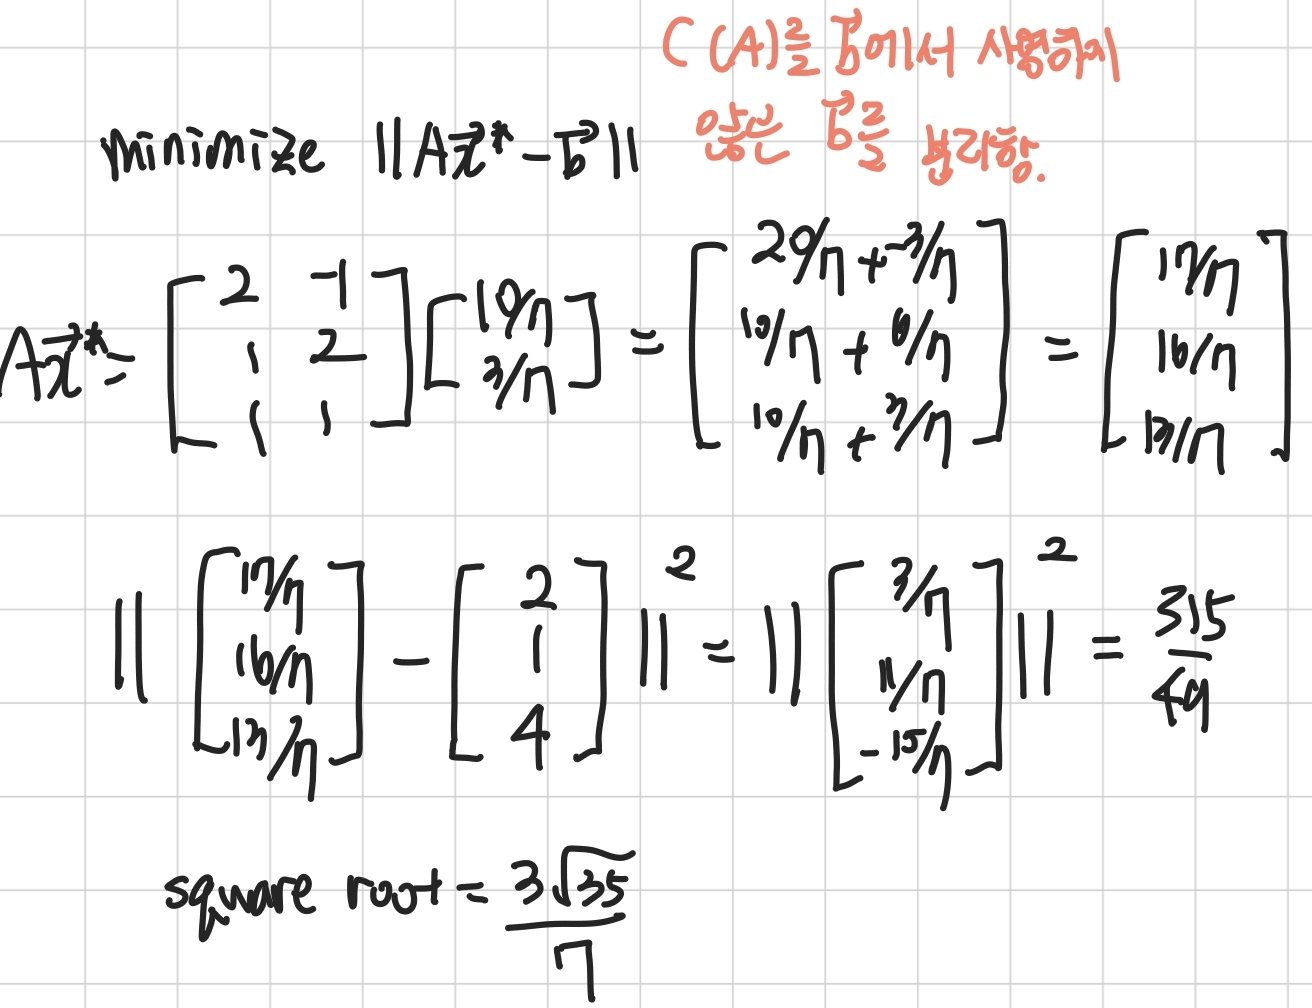 C(A)를 b⃗에서 사용하지
않은 b⃗를 분리함.
minimize ||Ax⃗* - b⃗||
Ax⃗* = [2 -1; 1 2; 1 1] [10/7; 3/7] = [20/7 + -3/7; 10/7 + 6/7; 10/7 + 3/7] = [17/7; 16/7; 13/7]
|| [17/7; 16/7; 13/7] - [2; 1; 4] ||² = || [3/7; 11/7; -15/7] ||² = 315/49
square root = 3√35/7